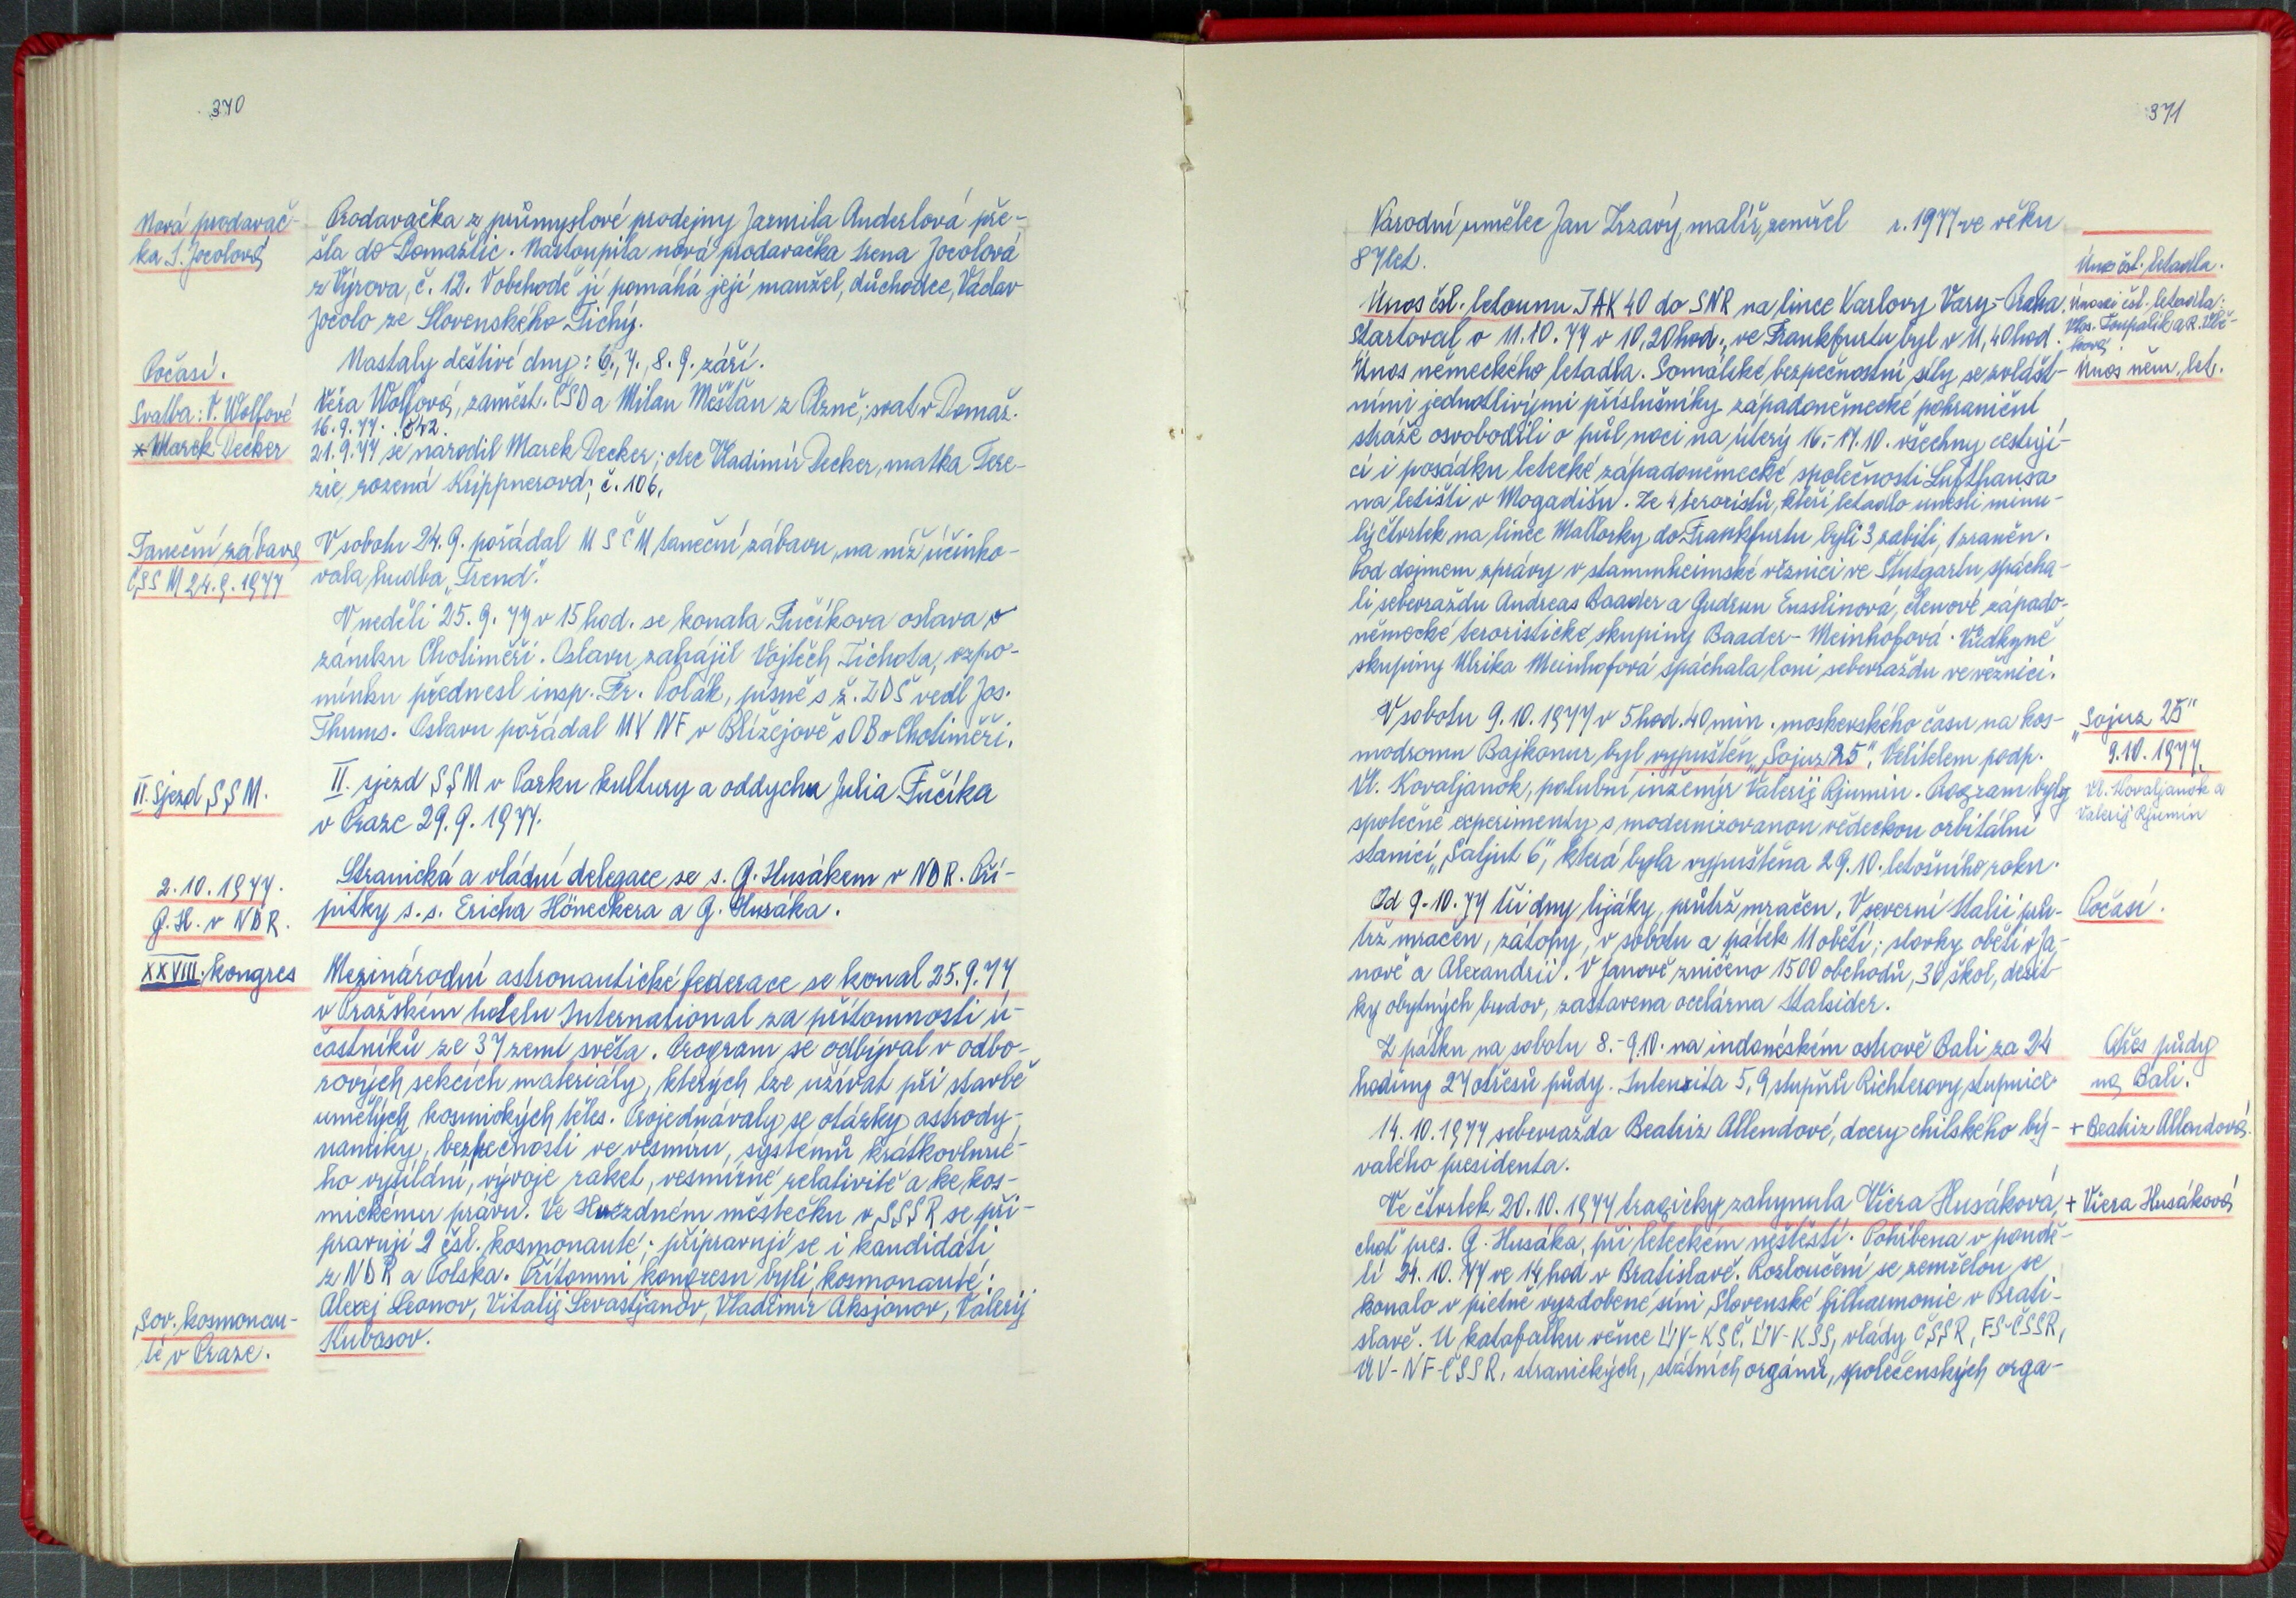 370
Nová prodavač-
ka I. Jocolová
Prodavačka z průmyslové prodejny Jarmila Anderlová pře-
šla do Domažlic. Nastoupila nová prodavačka Irena Jocolová
z Výrova, č. 12. V obchodě jí pomáhá její manžel, důchodce, Václav
Jocolo ze Slovenského Tichý.
Počasí.
Nastaly deštivé dny: 6., 7., 8. 9. září.
Svatba: V. Wolfové
Věra Wolfová, zaměst. ČSD a Milan Měšťan z Plzně; svat. v Domaž.
16. 9. 77. č 42.
* Marek Decker
21. 9. 77 se narodil Marek Decker; otec Vladimír Decker, matka Tere-
zie, rozená Krippnerová; č. 106.
Taneční zábava
ČSSM 24. 9. 1977
V sobotu 24. 9. pořádal MSČM taneční zábavu, na níž účinko-
vala hudba „Trend".
V neděli 25. 9. 77 v 15 hod. se konala Fučíkova oslava v
zámku Choliměři. Oslavu zahájil Vojtěch Tichota, vzpo-
mínku přednesl insp. Fr. Polák, písně s ž. ZDŠ vedl Jos.
Thums. Oslavu pořádal MV NF v Blížejově s OB v Choliměři.
II. Sjezd SSM.
II. sjezd SSM v Parku kultury a oddychu Julia Fučíka
v Praze 29. 9. 1977.
2. 10. 1977.
G. H. v NDR.
Stranická a vládní delegace se s. G. Husákem v NDR. Pří-
pitky s. s. Ericha Höneckera a G. Husáka.
XXVIII. kongres
Mezinárodní astronautické federace se konal 25. 9. 77
v Pražském hotelu International za přítomnosti ú-
častníků ze 37 zemí světa. Program se odbýval v odbo-
rových sekcích materiály, kterých lze užívat při stavbě
umělých kosmických těles. Projednávaly se otázky astrody-
namiky, bezpečnosti ve vesmíru, systémů krátkovlnné-
ho vysílání, vývoje raket, vesmírné relativitě a ke kos-
mickému právu. Ve Hvězdném městečku v SSSR se při-
pravují 2 čsl. kosmonauté; připravují se i kandidáti
z NDR a Polska. Přítomni kongresu byli kosmonauté:
Sov. kosmonau-
té v Praze.
Alexej Leonov, Vitalij Sevastjanov, Vladimír Aksjonov, Valerij
Kubasov.
371
Národní umělec Jan Zrzavý, malíř, zemřel r. 1977 ve věku
87 let.
Únos čsl. letadla.
Únosci čsl. letadla:
Vlas. Toupalík a R. Vlč-
ková
Únos čsl. letounu JAK 40 do SNR na lince Karlovy Vary - Praha.
Startoval v 11. 10. 77 v 10,20 hod., ve Frankfurtu byl v 11,40 hod.
Únos něm. let.
Únos německého letadla. Somálské bezpečnostní síly se zvlášt-
ními jednotlivými příslušníky západoněmecké pohraniční
stráže osvobodili o půl noci na úterý 16.-17. 10. všechny cestují-
cí i posádku letecké západoněmecké společnosti Lufthansa
na letišti v Mogadišu. Ze 4 teroristů, kteří letadlo unesli minu-
lý čtvrtek na lince Mallorky do Frankfurtu byli 3 zabiti, 1 zraněn.
Pod dojmem zprávy v stammheimské věznici ve Stutgartu spácha-
li sebevraždu Andreas Baader a Gudrun Ensslinová, členové západo-
německé teroristické skupiny Baader - Meinhofová. Vůdkyně
skupiny Ulrika Meinhofová spáchala loni sebevraždu ve věznici.
„Sojuz 25"
9. 10. 1977.
Vl. Kovaljonok a
Valerij Rjumin
V sobotu 9. 10. 1977 v 5 hod. 40 min. moskevského času na kos-
modromu Bajkonur byl vypuštěn „Sojuz 25". Velitelem podp.
Vl. Kovaljonok, palubní inženýr Valerij Rjumin. Program byly
společné experimenty s modernizovanou vědeckou orbitální
stanicí „Saljut 6", která byla vypuštěna 29. 10. letošního roku.
Počasí.
Od 9. 10. 77 tři dny lijáky, průtrž mračen. V severní Italii prů-
trž mračen, zátopy, v sobotu a pátek 11 obětí; stovky obětí v Ja-
nově a Alexandrii. V Janově zničeno 1500 obchodů, 30 škol, desít-
ky obytných budov, zastavena ocelárna Italsider.
Otřes půdy
na Bali.
Z pátku na sobotu 8.-9. 10. na indonéském ostrově Bali za 24
hodiny 27 otřesů půdy. Intenzita 5,9 stupňů Richterovy stupnice
+ Beatriz Allendová.
14. 10. 1977 sebevražda Beatriz Allendové, dcery chilského bý-
valého presidenta.
+ Viera Husáková
Ve čtvrtek 20. 10. 1977 tragicky zahynula Viera Husáková,
choť pres. G. Husáka, při leteckém neštěstí. Pohřbena v pondě-
lí 24. 10. 77 ve 14 hod v Bratislavě. Rozloučení se zemřelou se
konalo v pietně vyzdobené síni Slovenské filharmonie v Brati-
slavě. U katafalku věnce ÚV-KSČ, ÚV-KSS, vlády ČSSR, FS-ČSSR,
ÚV-NF-ČSSR, stranických, státních orgánů, společenských orga-